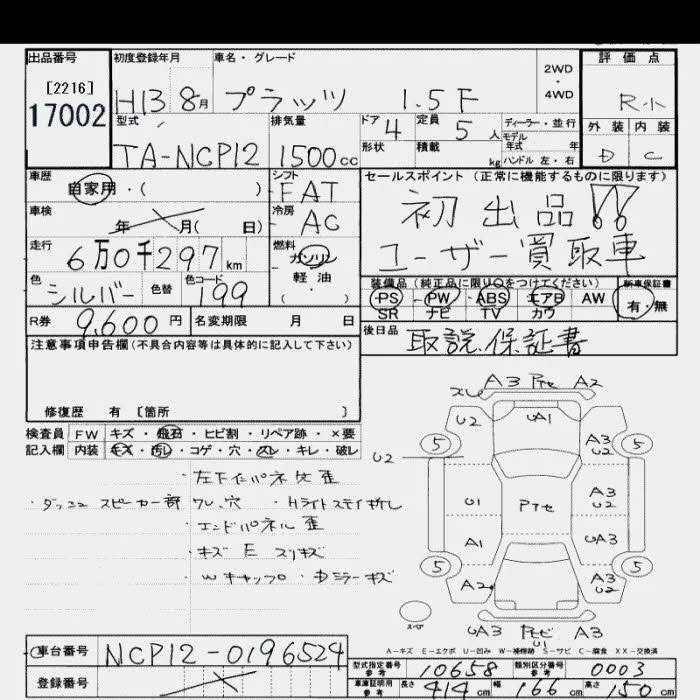 出品番号 初度登録年月 車名・グレード 2WD・4WD 評価点
[2216]
17002 H13 8月 プラッツ 1.5F R.小
型式 排気量 ドア 4 定員 5人 ディーラー・並行 外装 内装
TA-NCP12 1500cc 形状 積載 kg モデル年式 年 ハンドル 左・右 D C
車歴 シフト セールスポイント(正常に機能するものに限ります)
自家用・( ) FAT 初出品!!
車検 年 月( 日) 冷房 AC ユーザー買取車
走行 6万0千297km 燃料 ガソリン 軽・油 ( )
色 シルバー 色替 色コード 199 装備品(純正品に限り○をつけてください) 新車保証書
PS PW ABS エアB AW 有・無
SR ナビ TV カワ
R券 9,600円 名変期限 月 日 後日品 取説.保証書
注意事項申告欄(不具合内容等は具体的に記入して下さい)
修復歴 有 [箇所 ]
検査員 FW キズ・飛石・ヒビ割・リペア跡・×要
記入欄 内装 キズ・汚レ・コゲ・穴・スレ・キレ・破レ
・左下インパネ 歪
・ダッシュ スピーカー部 ワレ、穴 ・Hライトステイ折レ
・エンドパネル 歪
・キズ E スリキズ
・Wキャップ ・ミラーキズ
A3 A2
U2 UA1 A3 U2
5 5
U2
U1 A3 U2
A1 UA3
5 5
A2 A3 U2
スペア
UA3 U1 A3
A-キズ E-エクボ U-凹み W-補修跡 S-サビ C-腐食 XX-交換済
車台番号 NCP12-0196524
登録番号
型式指定番号 参考 10658 類別区分番号 参考 0003
車庫証明用 参考 長さ 414cm 幅 166cm 高さ 150cm